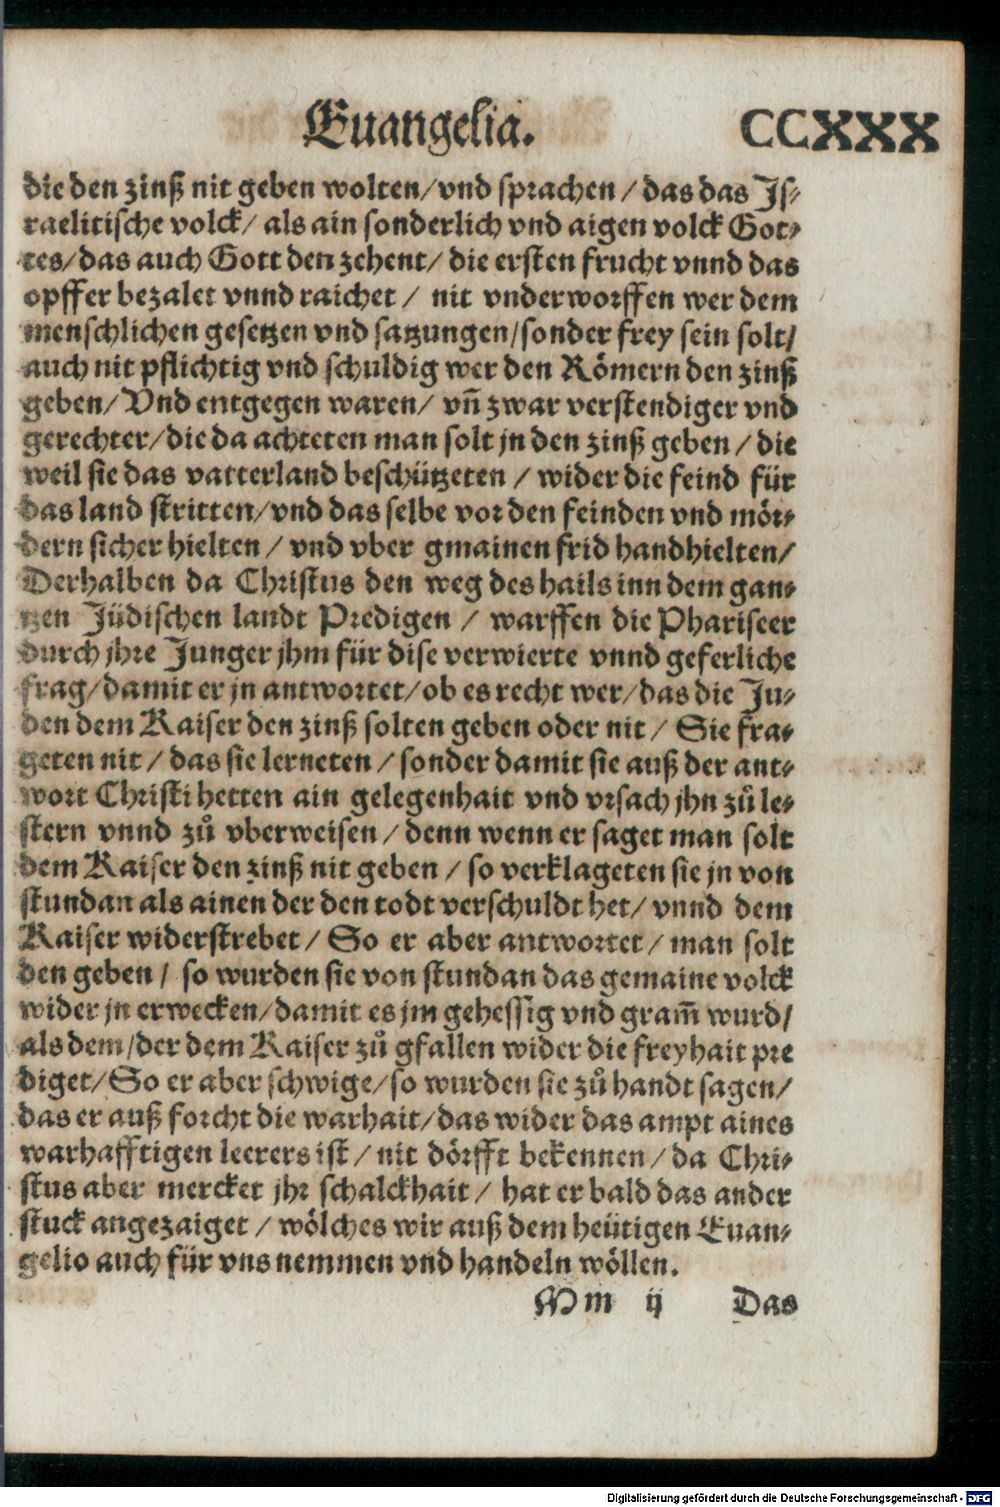 Euangelia. CCXXX
die den zinß nit geben wolten/vnd sprachen / das das Js⸗
raelitische volck/ als ain sonderlich vnd aigen volck Got⸗
tes/das auch Gott den zehent/ die ersten frucht vnnd das
opffer bezalet vnnd raichet / nit vnderworffen wer dem
menschlichen gesetzen vnd satzungen/sonder frey sein solt/
auch nit pflichtig vnd schuldig wer den Römern den zinß
geben/Vnd entgegen waren/ vñ zwar verstendiger vnd
gerechter/die da achteten man solt jn den zinß geben / die
weil sie das vatterland beschützeten / wider die feind für
das land stritten/vnd das selbe vor den feinden vnd mör⸗
dern sicher hielten / vnd vber gmainen frid handhielten/
Derhalben da Christus den weg des hails inn dem gan⸗
tzen Jüdischen landt Predigen / warffen die Phariseer
durch jhre Junger jhm für dise verwierte vnnd geferliche
frag/damit er jn antwortet/ob es recht wer/das die Ju⸗
den dem Kaiser den zinß solten geben oder nit / Sie fra⸗
geten nit / das sie lerneten / sonder damit sie auß der ant⸗
wort Christi hetten ain gelegenhait vnd vrsach jhn zů le⸗
stern vnnd zů vberweisen / denn wenn er saget man solt
dem Kaiser den zinß nit geben / so verklageten sie jn von
stundan als ainen der den todt verschuldt het/ vnnd dem
Kaiser widerstrebet / So er aber antwortet / man solt
den geben / so wurden sie von stundan das gemaine volck
wider jn erwecken/damit es jm gehessig vnd gram̃ wurd/
als dem/der dem Kaiser zů gfallen wider die freyhait pre
diget/So er aber schwige/so wurden sie zů handt sagen/
das er auß forcht die warhait/das wider das ampt aines
warhafftigen leerers ist / nit dörfft bekennen / da Chri⸗
stus aber mercket jhr schalckhait / hat er bald das ander
stuck angezaiget / wölches wir auß dem heütigen Euan⸗
gelio auch für vns nemmen vnd handeln wöllen.
Mm ij Das
Digitalisierung gefördert durch die Deutsche Forschungsgemeinschaft - DFG